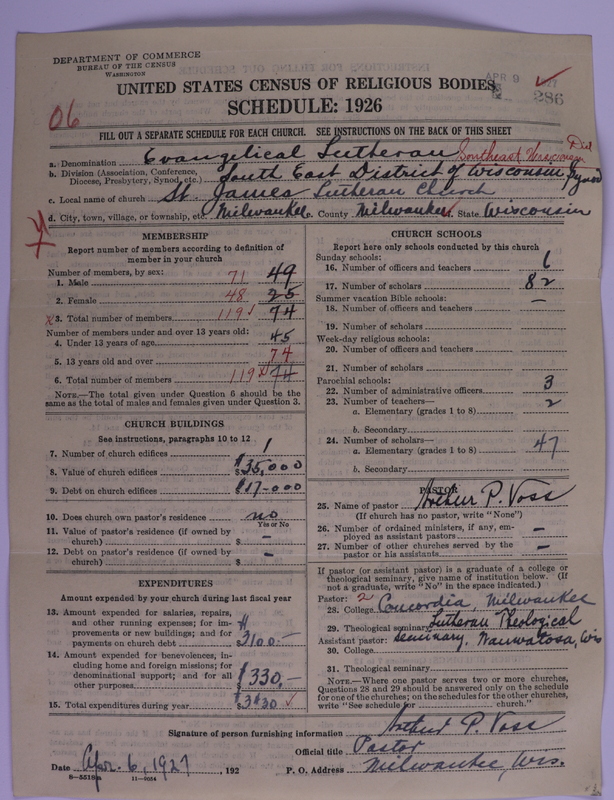 DEPARTMENT OF COMMERCE
BUREAU OF THE CENSUS
WASHINGTON
APR 9
286
UNITED STATES CENSUS OF RELIGIOUS BODIES
SCHEDULE: 1926
06
FILL OUT A SEPARATE SCHEDULE FOR EACH CHURCH. SEE INSTRUCTIONS ON THE BACK OF THIS SHEET
a. Denomination Evangelical Lutheran Southeast Wisconsin Dist
b. Division (Association, Conference, Diocese, Presbytery, Synod, etc.) South East District of Wisconsin Synod
c. Local name of church St. James Lutheran Church
d. City, town, village, or township, etc. Milwaukee e. County Milwaukee State Wisconsin
MEMBERSHIP
Report number of members according to definition of
member in your church
Number of members, by sex:
1. Male 71 49
2. Female 48 25
3. Total number of members 119 74
Number of members under and over 13 years old:
4. Under 13 years of age 45
5. 13 years old and over 74
6. Total number of members 119 74
NOTE.—The total given under Question 6 should be
same as the total of males and females given under Question 3.
CHURCH BUILDINGS
See instructions, paragraphs 10 to 12
7. Number of church edifices 1
8. Value of church edifices $35,000
9. Debt on church edifices $17-000
10. Does church own pastor's residence no
Yes or No
11. Value of pastor's residence (if owned by
church) $ -
12. Debt on pastor's residence (if owned by
church) $ -
EXPENDITURES
Amount expended by your church during last fiscal year
13. Amount expended for salaries, repairs,
and other running expenses; for im-
provements or new buildings; and for
payments on church debt $3100.-
14. Amount expended for benevolences, in-
cluding home and foreign missions; for
denominational support; and for all
other purposes $330.-
15. Total expenditures during year $3430
CHURCH SCHOOLS
Report here only schools conducted by this church
Sunday schools:
16. Number of officers and teachers 6
17. Number of scholars 82
Summer vacation Bible schools:
18. Number of officers and teachers —
19. Number of scholars
Week-day religious schools:
20. Number of officers and teachers
21. Number of scholars
Parochial schools:
22. Number of administrative officers 3
23. Number of teachers—
a. Elementary (grades 1 to 8) 2
b. Secondary
24. Number of scholars—
a. Elementary (grades 1 to 8) 47
b. Secondary
PASTOR
25. Name of pastor Arthur P. Voss
(If church has no pastor, write "None")
26. Number of ordained ministers, if any, em-
ployed as assistant pastors -
27. Number of other churches served by the
pastor or his assistants -
If pastor (or assistant pastor) is a graduate of a college or
theological seminary, give name of institution below. (If
not a graduate, write "No" in the space indicated.)
Pastor: 2
28. College Concordia, Milwaukee
29. Theological seminary Lutheran Theological
Assistant pastor: Seminary, Wauwatosa, Wis
30. College
31. Theological seminary
NOTE.—Where one pastor serves two or more churches,
Questions 28 and 29 should be answered only on the schedule
for one of the churches; on the schedules for the other churches,
write "See schedule for church."
Signature of person furnishing information Arthur P. Voss
Official title Pastor
Date Apr. 6, 1927, 192
P. O. Address Milwaukee, Wis.
8—5518a 11—9034